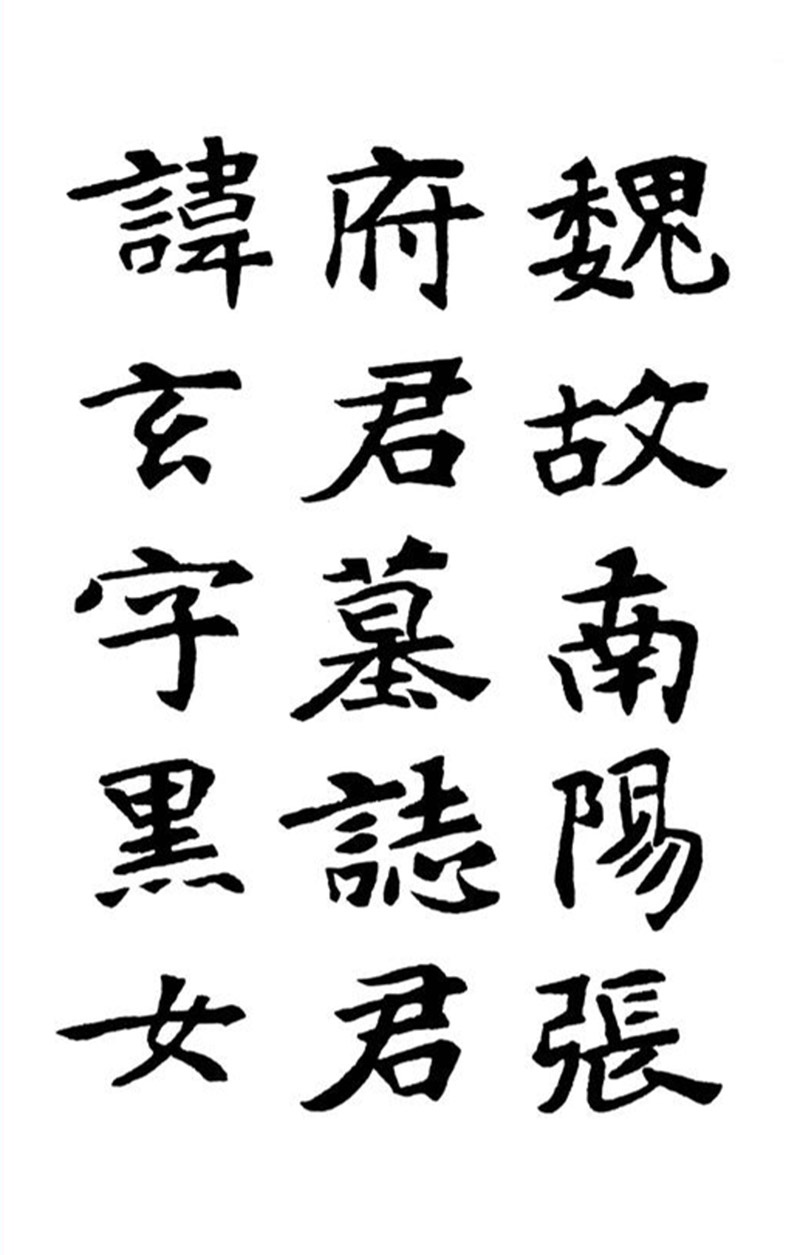 魏故南陽張
府君墓誌君
諱玄字黑女